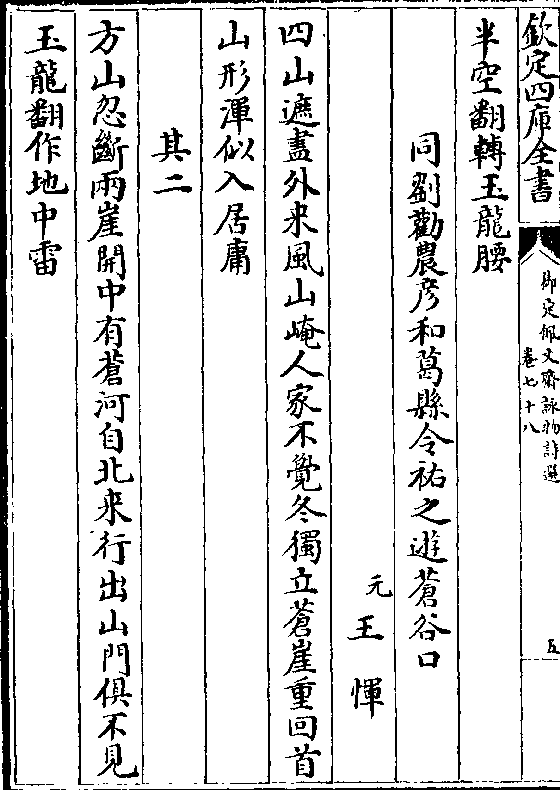 欽定四庫全書
御定佩文齋詠物詩選
卷七十八
五
半空翻轉玉龍腰
同劉勸農彦和葛縣令祐之遊蒼谷口
元
王惲
四山遮盡外来風山崦人家不覺冬獨立蒼崖重回首
山形渾似入居庸
其二
方山忽斷兩崖開中有蒼河自北来行出山門俱不見
玉龍翻作地中雷